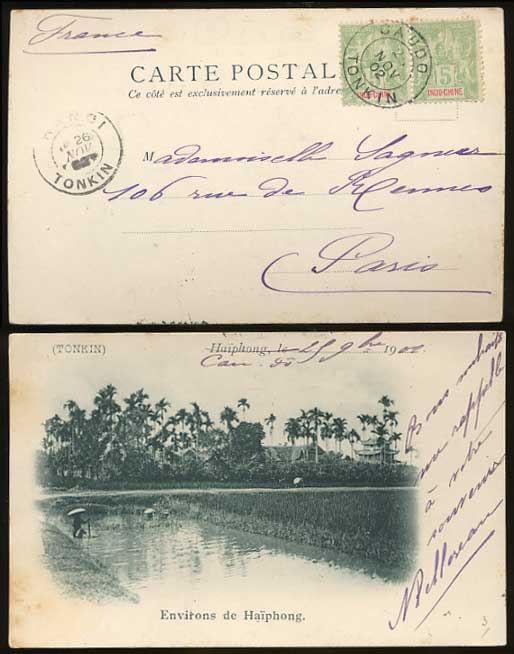 France
CARTE POSTAL
Ce côté est exclusivement réservé à l'adre
CAUDO
NOV
02
TONKIN
INDO-CHINE
5
INDO-CHINE
HANOI
26
NOV
TONKIN
Mademoiselle Sagnier
106 rue de Rennes
Paris
(TONKIN)
Haïphong, le 25 9bre 1902
Cau-Dô
Bons souhaits
me rappelle
à votre
souvenir
Environs de Haïphong.
3